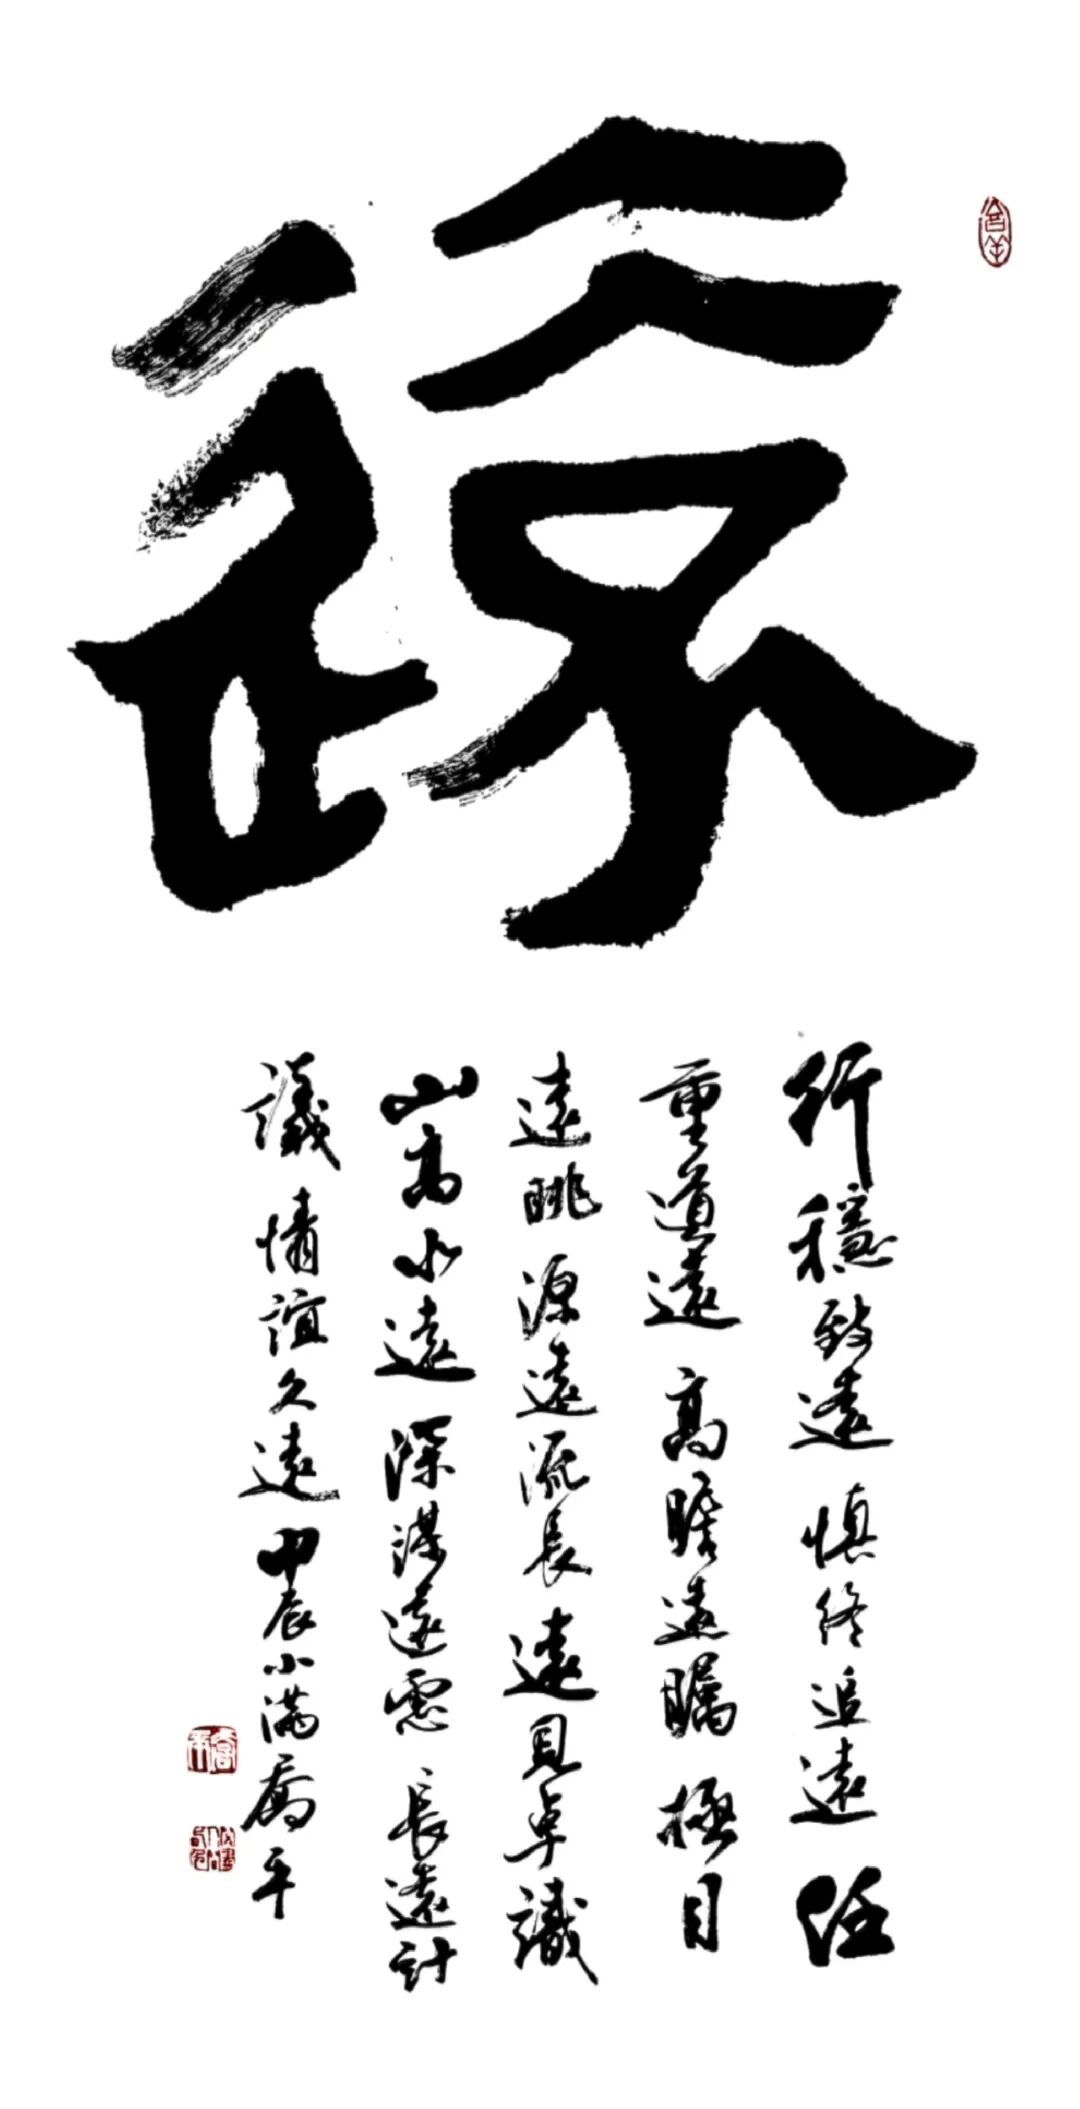 遠
行穩致遠 慎終追遠 任
重道遠 高瞻遠瞩 極目
遠眺 源遠流長 遠見卓識
山高水遠 深謀遠慮 長遠計
議 情誼久遠 甲辰小滿 喬平